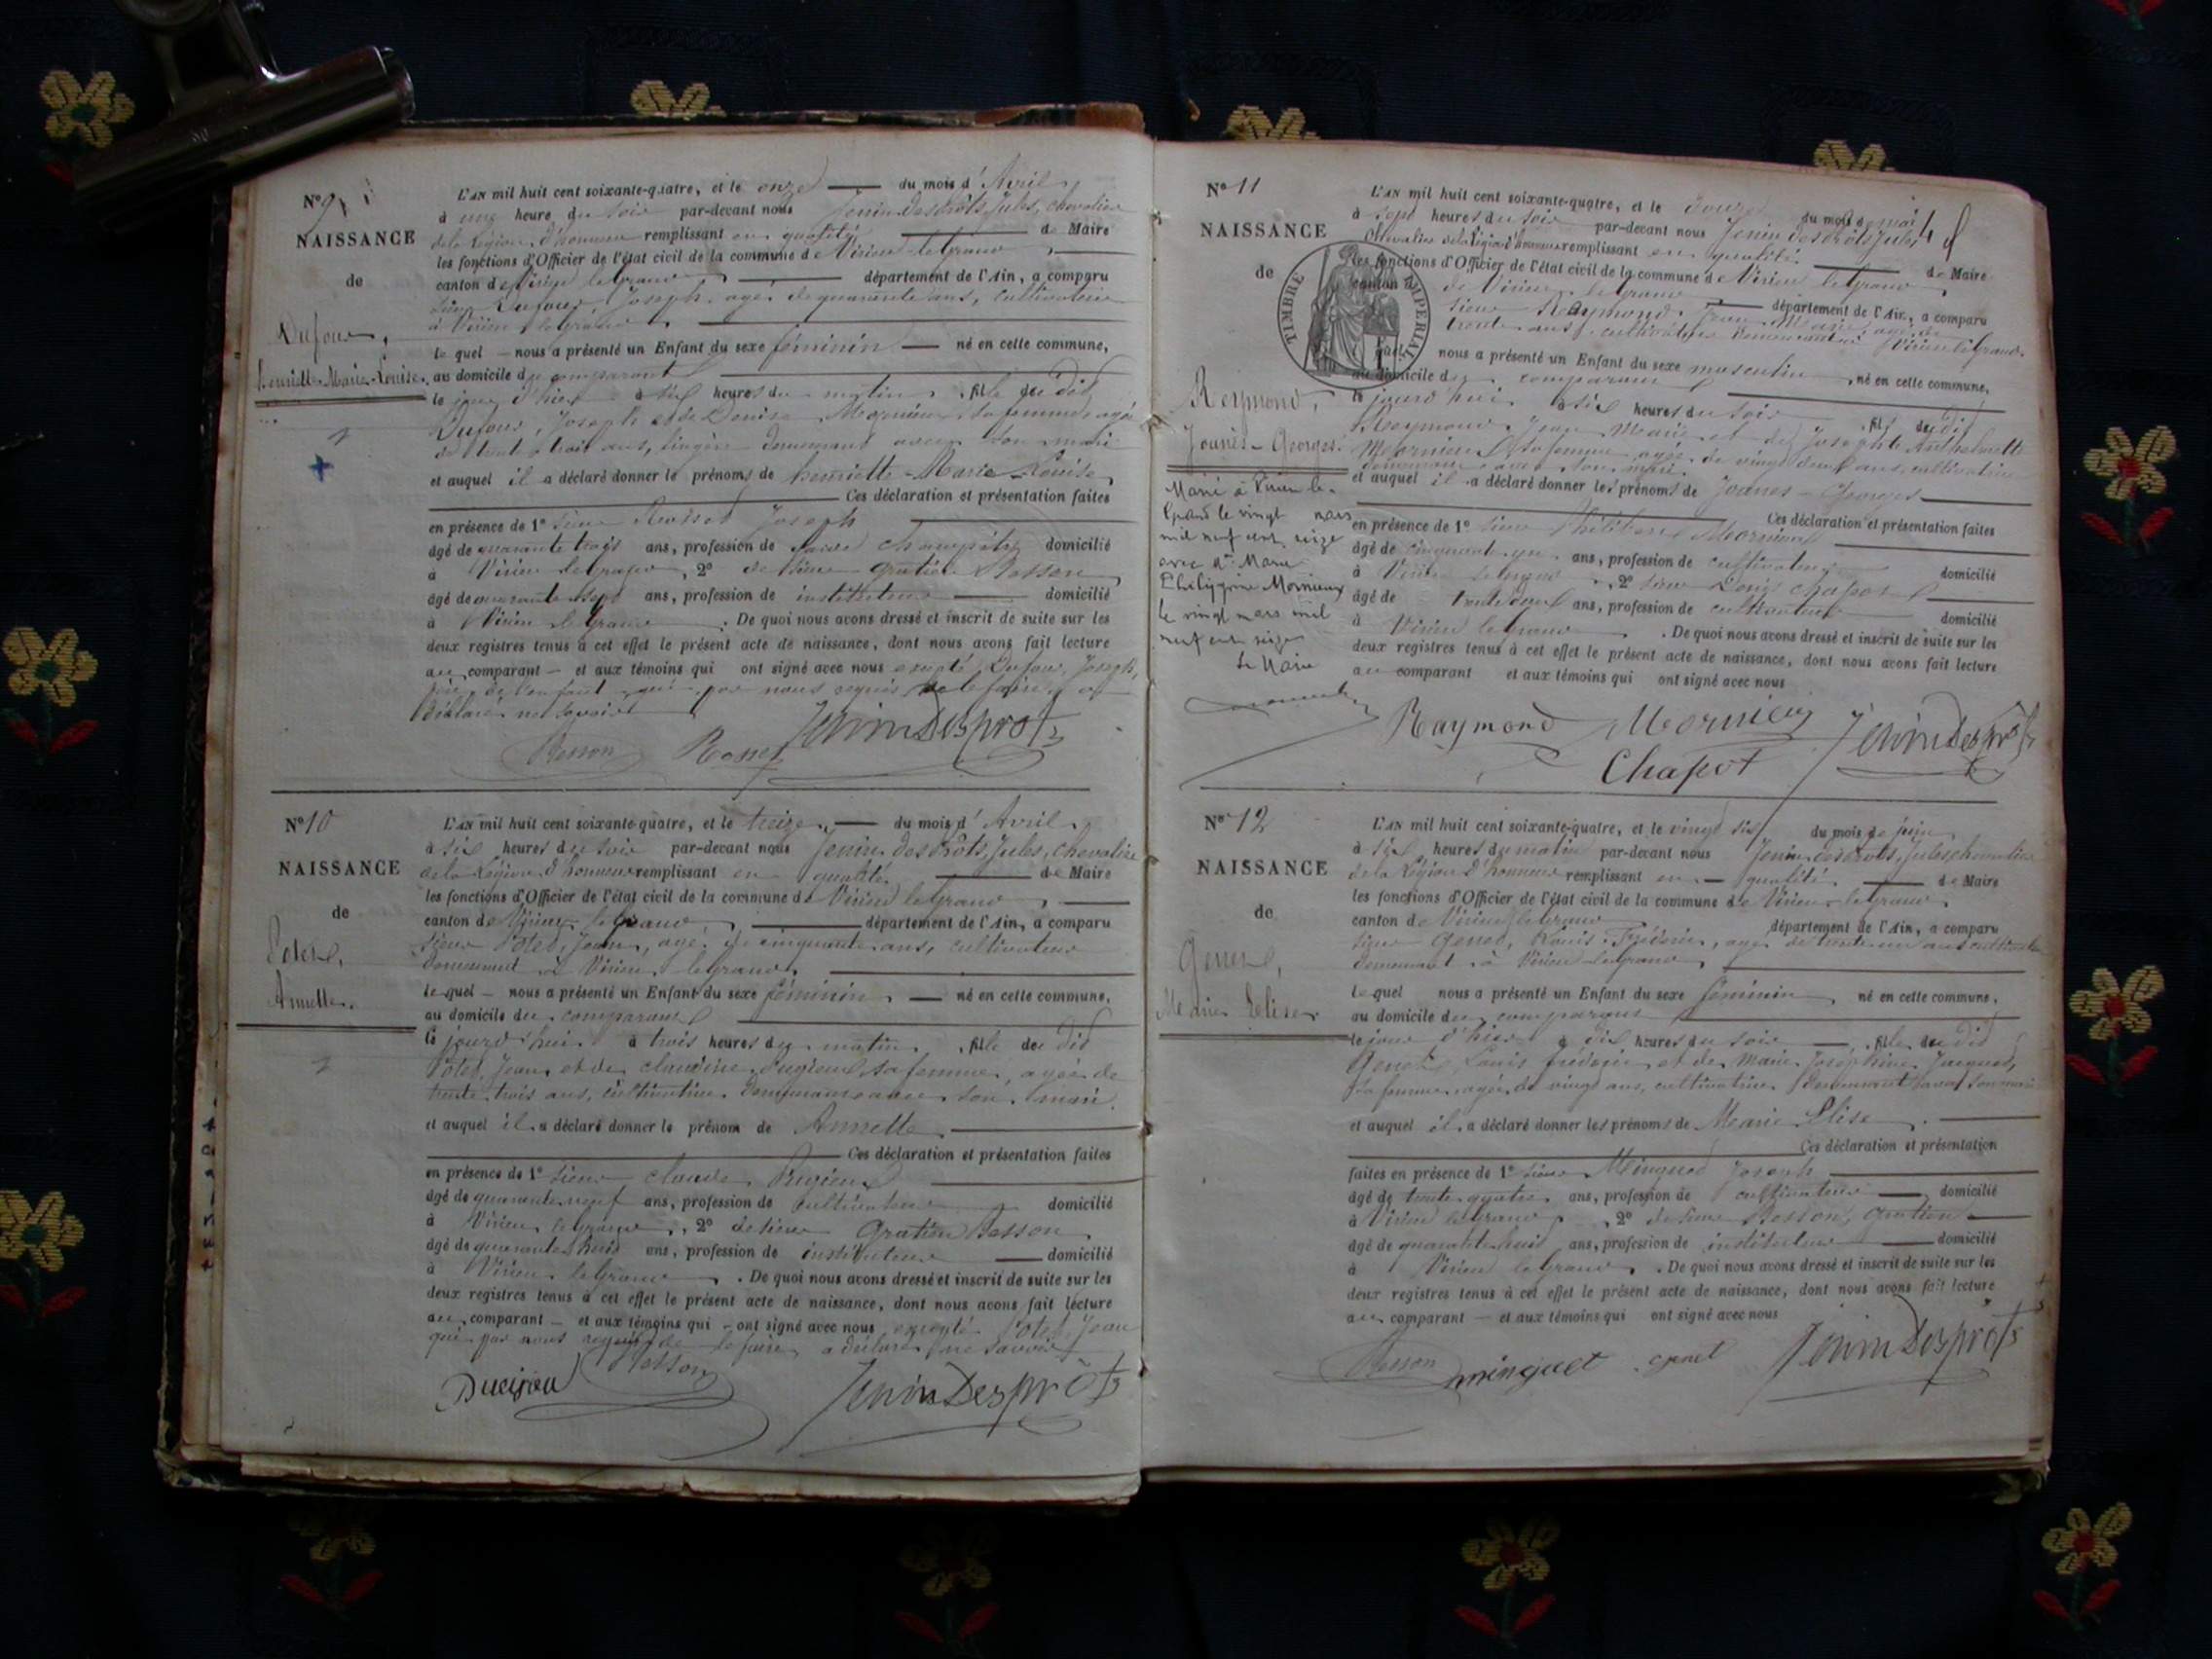 N° 9
NAISSANCE
de
Dufour,
henriette-Marie-Louise.
L'AN mil huit cent soixante-quatre, et le onze du mois d'Avril,
à une heure du soir par-devant nous Jenin desprôts, Jules, chevalier
de la Légion d'honneur remplissant en qualité de Maire
les fonctions d'Officier de l'état civil de la commune de Virieu le grand
canton de Virieu le grand, département de l'Ain, a comparu
sieur Dufour, Joseph, agé de quarante ans, cultivateur
à Virieu le grand.
lequel nous a présenté un Enfant du sexe féminin né en cette commune,
au domicile du comparant
le jour d'hier à six heures du matin, fille du dit
Dufour, Joseph et de Mornieux, sa femme, agée
de trente trois ans, lingère demeurant avec son mari
et auquel il a déclaré donner le prénoms de henriette-Marie-Louise
Ces déclaration et présentation faites
en présence de 1° sieur Rosset Joseph
âgé de quarante trois ans, profession de garde champêtre domicilié
à Virieu le grand, 2° de sieur gratien Besson
âgé de quarante sept ans, profession de instituteur domicilié
à Virieu le grand. De quoi nous avons dressé et inscrit de suite sur les
deux registres tenus à cet effet le présent acte de naissance, dont nous avons fait lecture
au comparant et aux témoins qui ont signé avec nous excepté Dufour, Joseph,
père de l'enfant qui par nous requis de le faire, a
déclaré ne savoir
Besson Rosset JeninDesprôts
N° 10
NAISSANCE
de
Potet,
Annette.
L'AN mil huit cent soixante-quatre, et le treize du mois d'Avril,
à six heures du soir par-devant nous Jenin desprôts, Jules, chevalier
de la Légion d'honneur remplissant en qualité de Maire
les fonctions d'Officier de l'état civil de la commune de Virieu le grand,
canton de Virieu le grand, département de l'Ain, a comparu
sieur Potet, Jean, agé de cinquante ans, cultivateur
demeurant à Virieu le grand,
lequel nous a présenté un Enfant du sexe féminin, né en cette commune,
au domicile du comparant
le jourd'hui à trois heures du matin, fille du dit
Potet, Jean et de claudine sa femme, agée de
trente trois ans, cultivatrice demeurant avec son mari.
et auquel il a déclaré donner le prénom de Annette.
Ces déclaration et présentation faites
en présence de 1° sieur claude
âgé de quarante neuf ans, profession de cultivateur domicilié
à Virieu le grand, 2° de sieur Gratien Besson
âgé de quarante huit ans, profession de instituteur domicilié
à Virieu le grand. De quoi nous avons dressé et inscrit de suite sur les
deux registres tenus à cet effet le présent acte de naissance, dont nous avons fait lecture
au comparant et aux témoins qui ont signé avec nous excepté Potet, Jean
qui par nous requis de le faire a déclaré ne savoir
Besson JeninDesprôts
N° 11
NAISSANCE
de
TIMBRE IMPERIAL
Reymond,
Joanès-Georges.
Marié à Virieu-le-
Grand le vingt mars
mil neuf cent seize
avec Mornieux
le vingt mars mil
neuf cent seize
Le Maire
L'AN mil huit cent soixante-quatre, et le douze du mois de mai
à sept heures du soir par-devant nous Jenin desprôts, Jules,
Chevalier de la Légion d'honneur remplissant en qualité de Maire
les fonctions d'Officier de l'état civil de la commune de Virieu le grand
canton de Virieu le grand, département de l'Ain, a comparu
sieur Raymond, Jean Marie, agé de
trente ans, cultivateur demeurant à Virieu le grand.
lequel nous a présenté un Enfant du sexe masculin, né en cette commune,
au domicile du comparant
le jourd'hui à six heures du soir, fils du dit
Reymond, Jean Marie et de Josephte Anthelmette
Mornieux sa femme, agée de vingt deux ans, cultivatrice
demeurant avec son mari.
et auquel il a déclaré donner les prénoms de Joanès-Georges
Ces déclaration et présentation faites
en présence de 1° sieur Philibert Mornieux
âgé de cinquante un ans, profession de cultivateur domicilié
à Virieu le grand, 2° sieur Louis chapot
âgé de trente deux ans, profession de cultivateur domicilié
à Virieu le grand. De quoi nous avons dressé et inscrit de suite sur les
deux registres tenus à cet effet le présent acte de naissance, dont nous avons fait lecture
au comparant et aux témoins qui ont signé avec nous
Raymond Mornieux JeninDesprôts
Chapot
N° 12
NAISSANCE
de
Genet,
Marie Elise.
L'AN mil huit cent soixante-quatre, et le vingt six du mois de juin
à six heures du matin par-devant nous Jenin desprôts, Jules, chevalier
de la Légion d'honneur remplissant en qualité de Maire
les fonctions d'Officier de l'état civil de la commune de Virieu le grand,
canton de Virieu le grand département de l'Ain, a comparu
sieur Genet, Louis Frédéric, agé de trente un ans cultivateur
demeurant à Virieu le grand,
lequel nous a présenté un Enfant du sexe féminin, né en cette commune,
au domicile du comparant
le jour d'hier à dix heures du soir, fille du dit
Genet, Louis frédéric et de Marie Joséphine Jacquet,
sa femme, agée de vingt ans, cultivatrice, demeurant avec son mari
et auquel il a déclaré donner les prénoms de Marie Elise.
Ces déclaration et présentation
faites en présence de 1° sieur Minguet Joseph
âgé de trente quatre ans, profession de cultivateur domicilié
à Virieu le grand, 2° de sieur Besson, gratien
âgé de quarante huit ans, profession de instituteur domicilié
à Virieu le grand. De quoi nous avons dressé et inscrit de suite sur les
deux registres tenus à cet effet le présent acte de naissance, dont nous avons fait lecture
au comparant et aux témoins qui ont signé avec nous
Besson minguet genet JeninDesprôts